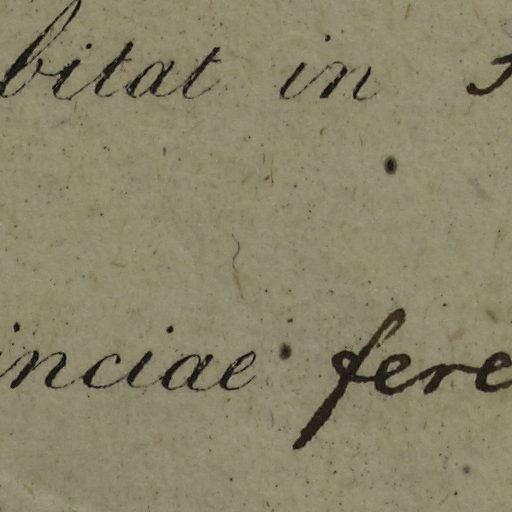 bitat in
inciae fere